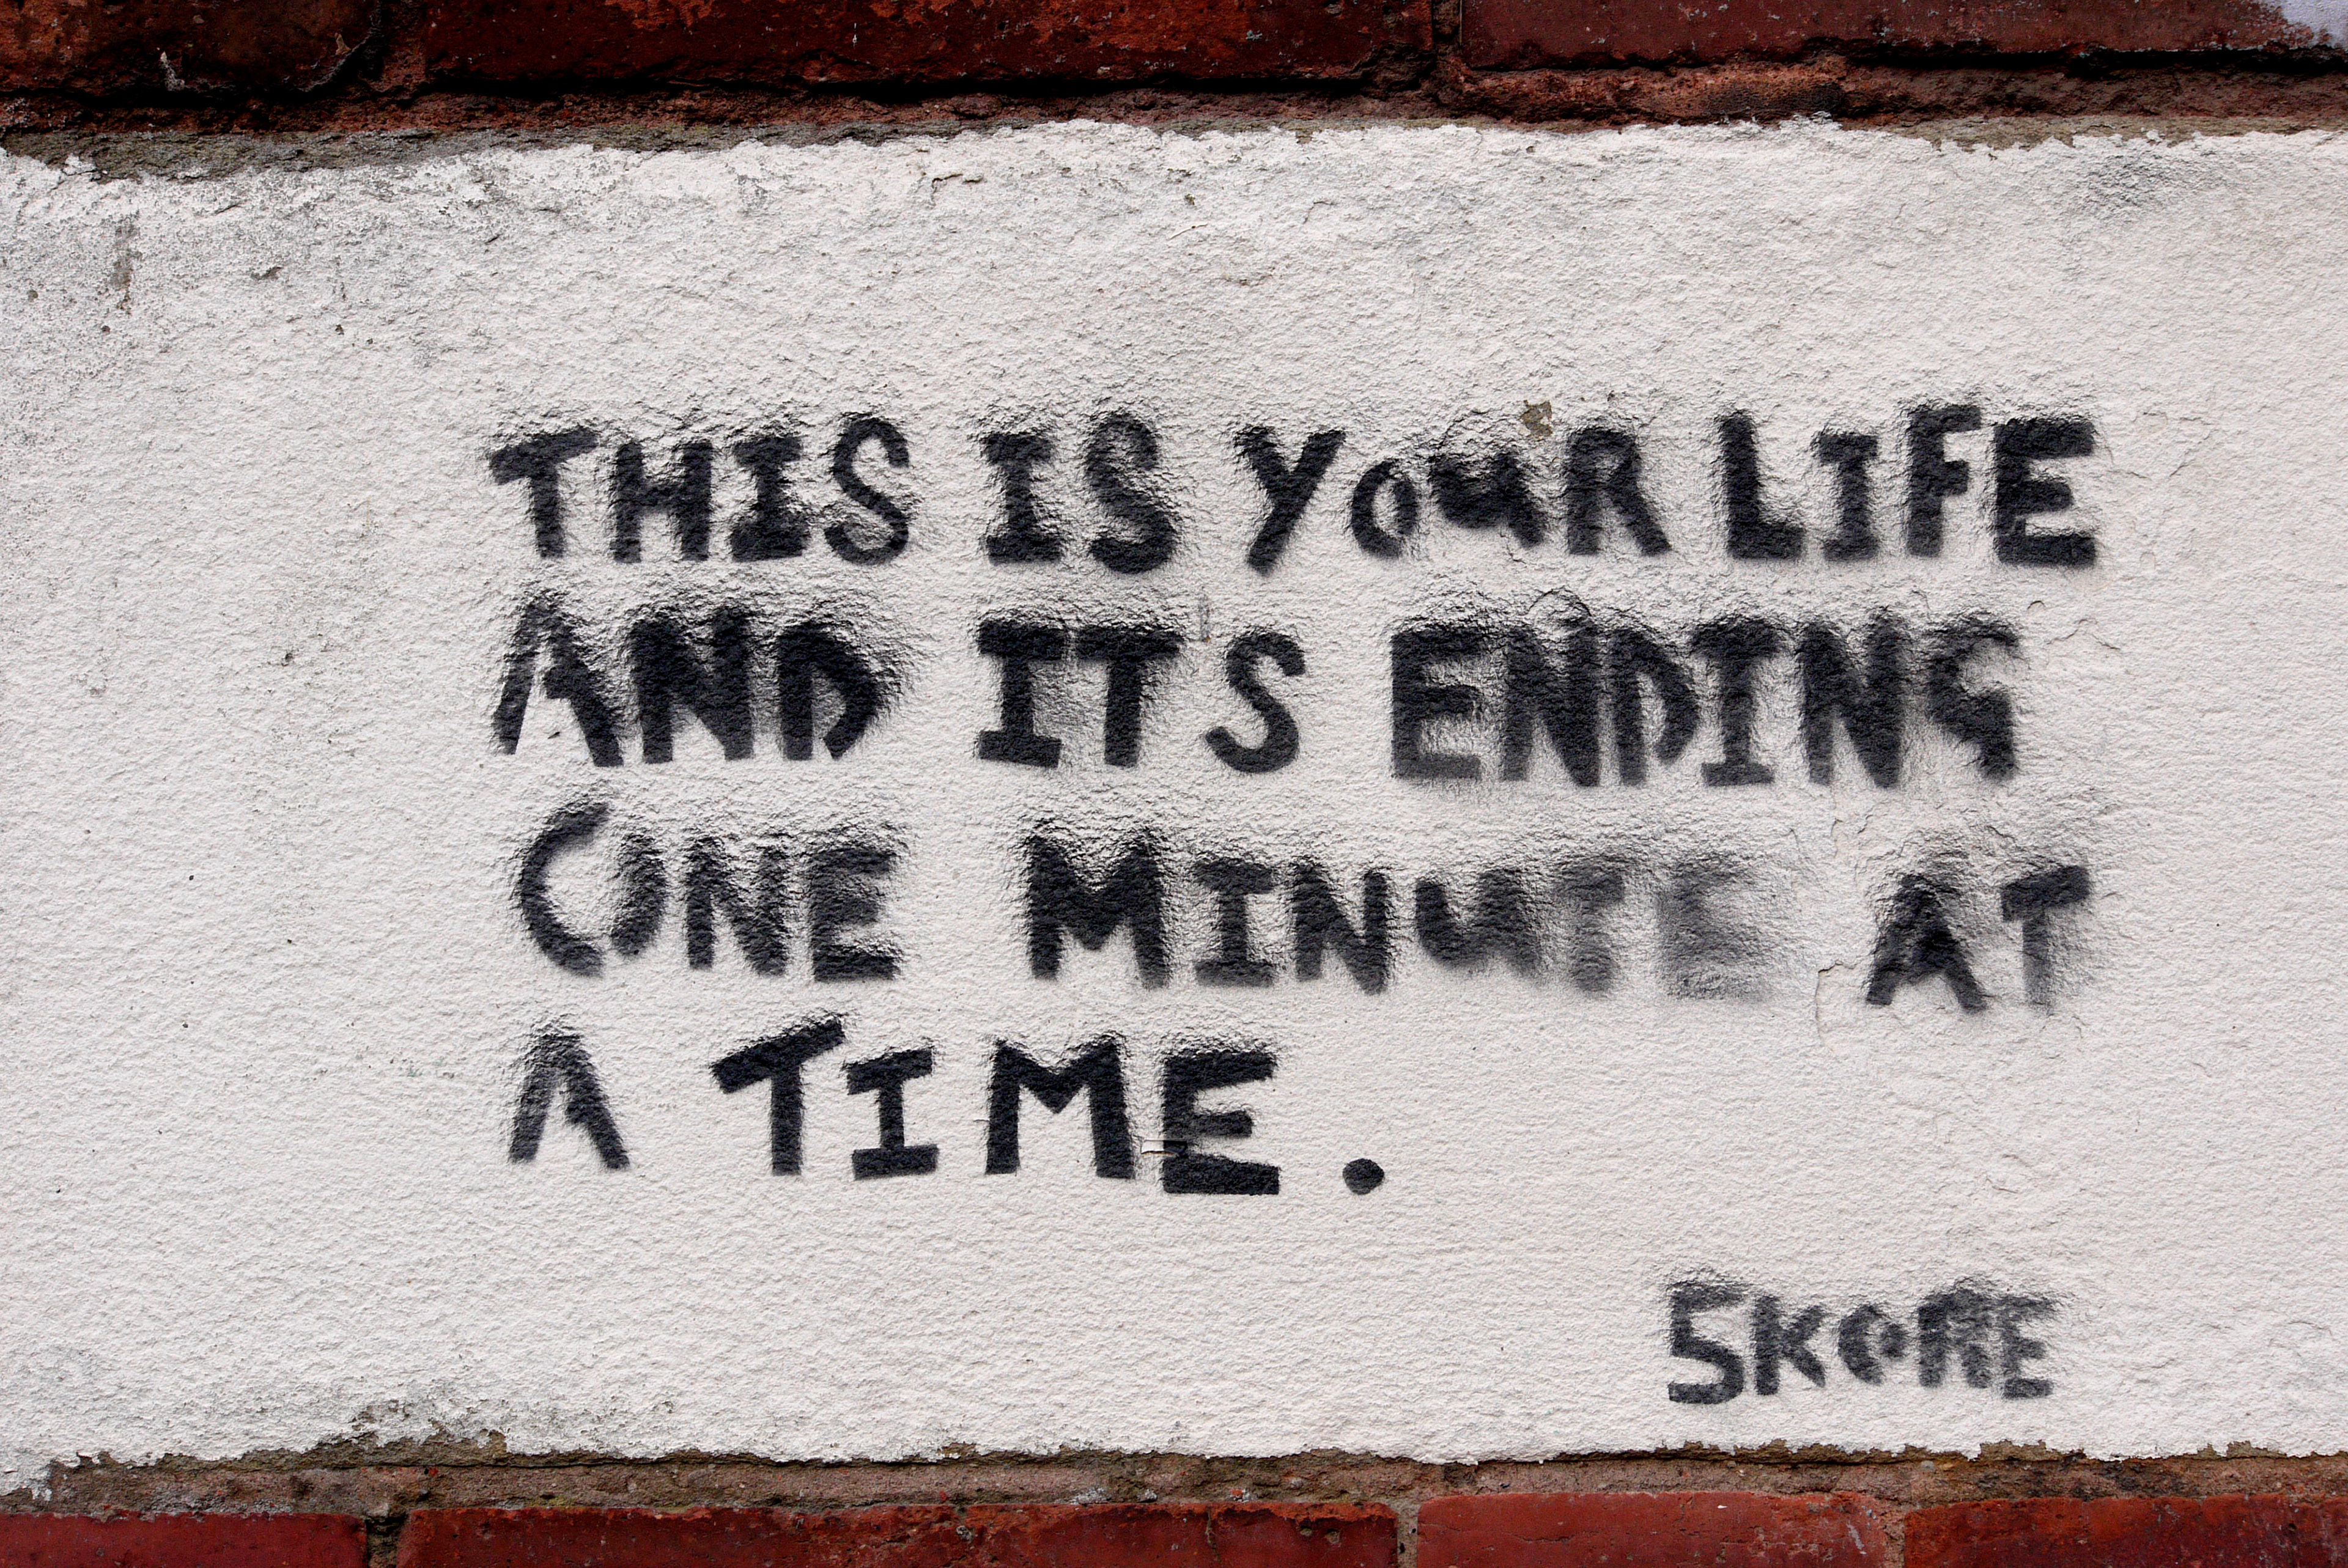 THIS IS YouR LIFE
AND IT'S ENDING
ONE MINuTE AT
A TIME.
SKORE